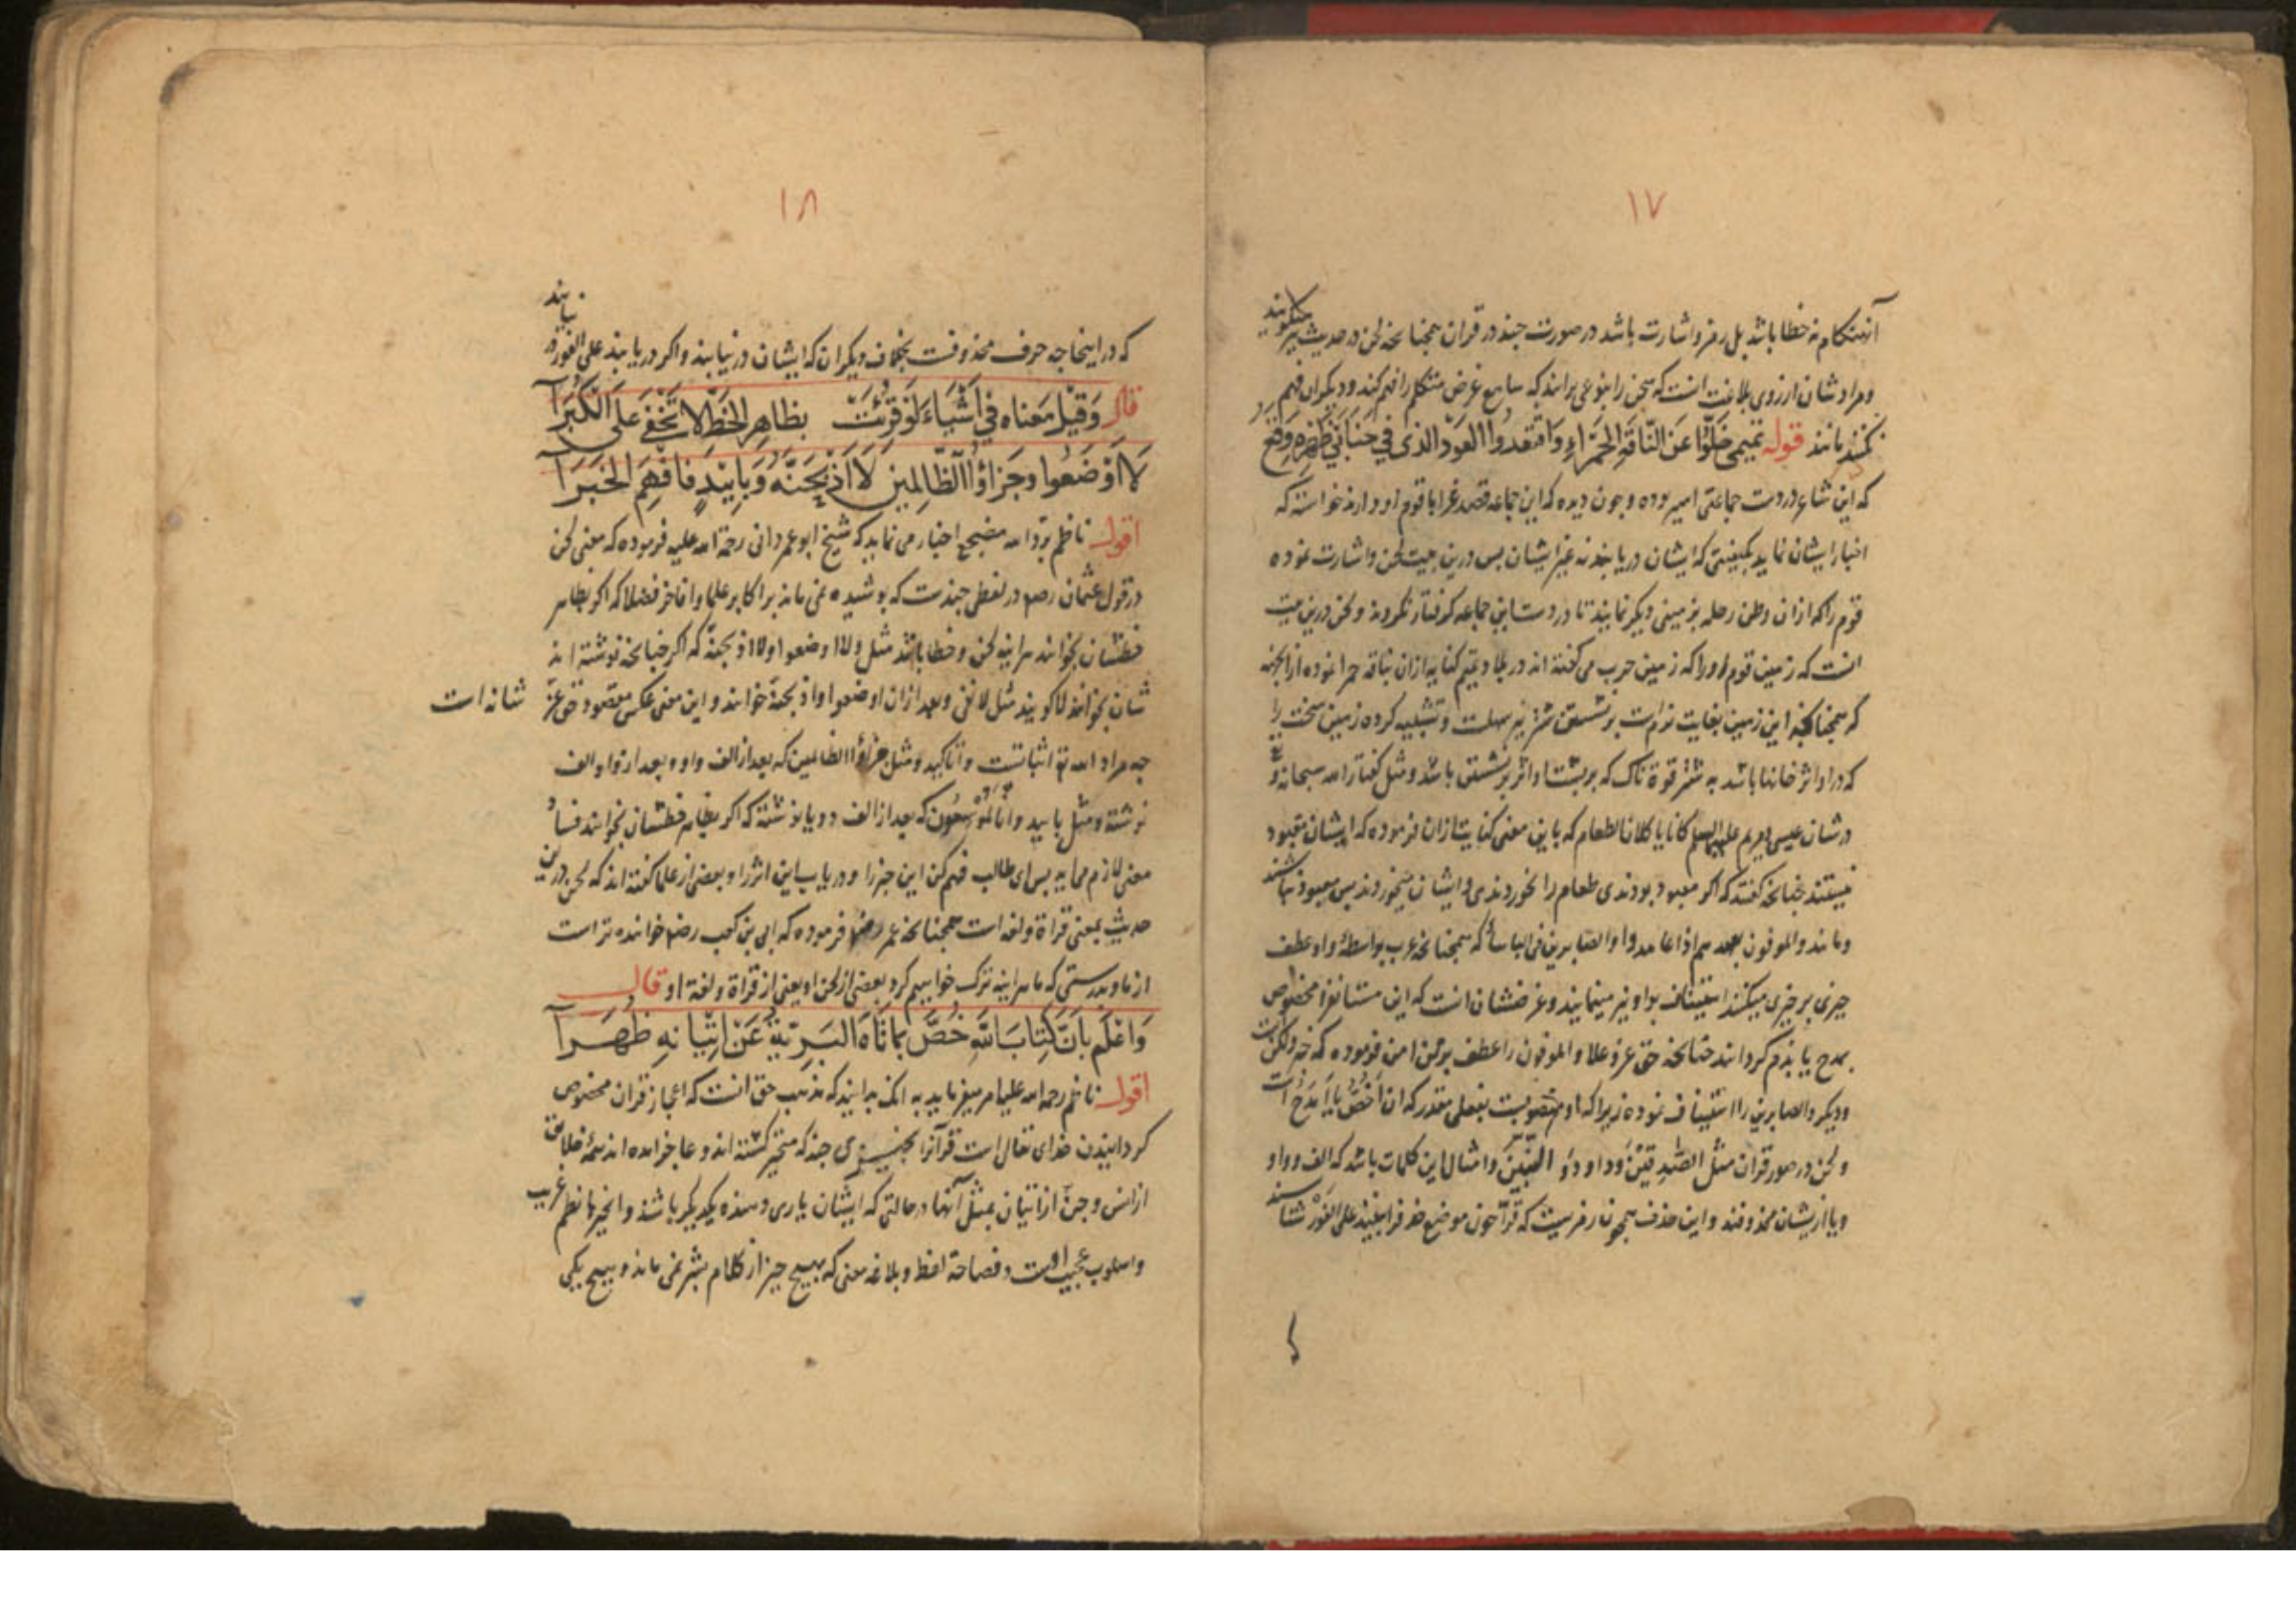 ١٧
آنهنكام نه خطا باشد بل رمز و اشارت باشد در صورت جند در قران همجنانحه لحن در حديث نيز ميكويند
و مراد شان از روى بلاغت انست كه سخن را بنوعى برانند كه سامع غرض متكلم را فهم كند و ديكران فهم
نكنند مانند قوله تميمى خَلُّوا عَنِ النَّاقَةِ الحَمْرَاءِ وَاقْتَعِدُوا العَوْدَ الذى فى جنَابَىْ ظَهْرِهِ وَقَعُ
كه اين شاعر در دست جماعتى اسير بوده و جون ديده كه اين جماعه قصد غزا با قوم او دارند خواسته كه
اخبار ايشان نمايد بكيفيتى كه ايشان دريابند نه غير ايشان بس درين بيت لحن و اشارت نموده
قوم را كه ازان وطن رحله بزمينى ديكر نمايند تا در دست اين جماعه كرفتار نكردند و لحن درين بيت
انست كه زمين قوم او را كه زمين حرب مى كفته اند در بلاد تميم كنايه ازان بناقه حمرا نموده از انجهه
كه همجنانكه اين زمين بغايت نرمست بر نشستن شتر نيز سهلست و تشبيه كرده زمين سخت را
كه در او اثر خانها باشد به شتر قوة ناك كه بر بشت او اثر بر نشستن باشد و مثل كفتار الله سبحانه و تع
در شان عيسى و مريم عليهما السلم كانا ياكلان الطعام كه باين معنى كنايت ازان فرموده كه ايشان معبود
نيستند جنانحه كفته كه اكر معبود بودندى طعام را نخوردندى و ايشان ميخوردند بس معبود نباشند
و مانند والموفون بعهدهم اذا عاهدوا والصابرين فى الباساء كه همجنانحه عرب بواسطهٔ واو عطف
جيزى بر جيزى ميكنند استيناف بواو نيز مينمايند و غرضشان انست كه اين مستانف را مخصوص
بمدح يا بذم كردانند جنانحه حق عز و علا والموفون را عطف بر من امن فرموده كه خبر ولكن است
و ديكر والصابرين را استيناف نموده زيرا كه او منصوبست بفعلى مقدر كه ان اَخُصُّ يا اَمدَحُ است
و لحن در صور قران مثل الصّٰدِقِيْنَ و داوٗد و النَّبِيّٖنَ و امثال اين كلمات باشد كه الف و واو
و يا از ايشان محذوفند و اين حذف همجون رمزيست كه قرّا جون موضع حذف را بينند على الفَوْر شناسند
١٨
كه در اينجا جه حرف محذوفست بخلاف ديكران كه ايشان در نيابند و اكر دريابند على الفور در
نيابند
قال وَقِيْلَ مَعناه فِى اَشْيَاءَ لَوْ قُرِئَتْ بظاهِرِ الخَطِّ لا تَخْفَى عَلَى الكُبَرَا
لَا اَوْضَعُوا وَجَزَاؤُا الظَّالِمِيْنَ لَا اَذْبَحَنَّهُ وَبِاَيْيْدٍ فَافْهَمِ الخَبَرَا
اقول ناظم برّد الله مضجعه اخبار مى نمايد كه شيخ ابو عمرو دانى رحمة الله عليه فرموده كه معنى لحن
در قول عثمان رضه در لفظى جندست كه بوشيده نمى ماند بر اكابر علما و افاخر فضلا كه اكر بظاهر
خطشان بخوانند هر اينه لحن و خطا باشد مثل ولااوضعوا و لااذبحنه كه اكر جنانحه نوشته اند
شان بخوانند لا كويند مثل لا نفى و بعد ازان اوضعوا و اذبحنه خوانند و اين معنى عكس مقصود حق عز
شانه است
جه مراد الله تع اثباتست و تاكيد و مثل جزاؤُا الظالمين كه بعد از الف واو و بعد از واو الف
نوشته و مثل باييد و انا لموسعون كه بعد از الف دو يا نوشته كه اكر بظاهر خطشان بخوانند فساد
معنى لازم مى ايد بس اى طالب فهم كن اين خبر را و درياب اين اثر را و بعضى از علما كفته اند كه لحن درين
حديث بمعنى قراة و لغه است همجنانحه عمر رضه فرموده كه ابى بن كعب رضه خواننده تر است
از ما و بدرستى كه ما هر اينه ترك خواهيم كرد بعضى از لحن او يعنى از قراة و لغة او قال
وَاعْلَم بِاَنَّ كِتَابَ اللهِ خُصَّ بِمَا تَاهَ البَرِيَّةُ عَنْ اِتْيَانِهِ ظُهَرَا
اقول ناظم رحمه الله عليه امر ميفرمايد به انك بدانيد كه مذهب حق انست كه اعجاز قران مخصوص
كردانيدن خداى تعالى است قرآنرا بجيزى جند كه متحير كشته اند و عاجز امده اند همهٔ خلايق
از انس و جن از اتيان بمثل آنها در حالتى كه ايشان يارى دهنده يكديكر باشند و انجيزها نظم غريب
و اسلوب عجيب اوست و فصاحة لفظ و بلاغه معنى كه بهيج جيز از كلام بشر نمى ماند و بهيج يكى